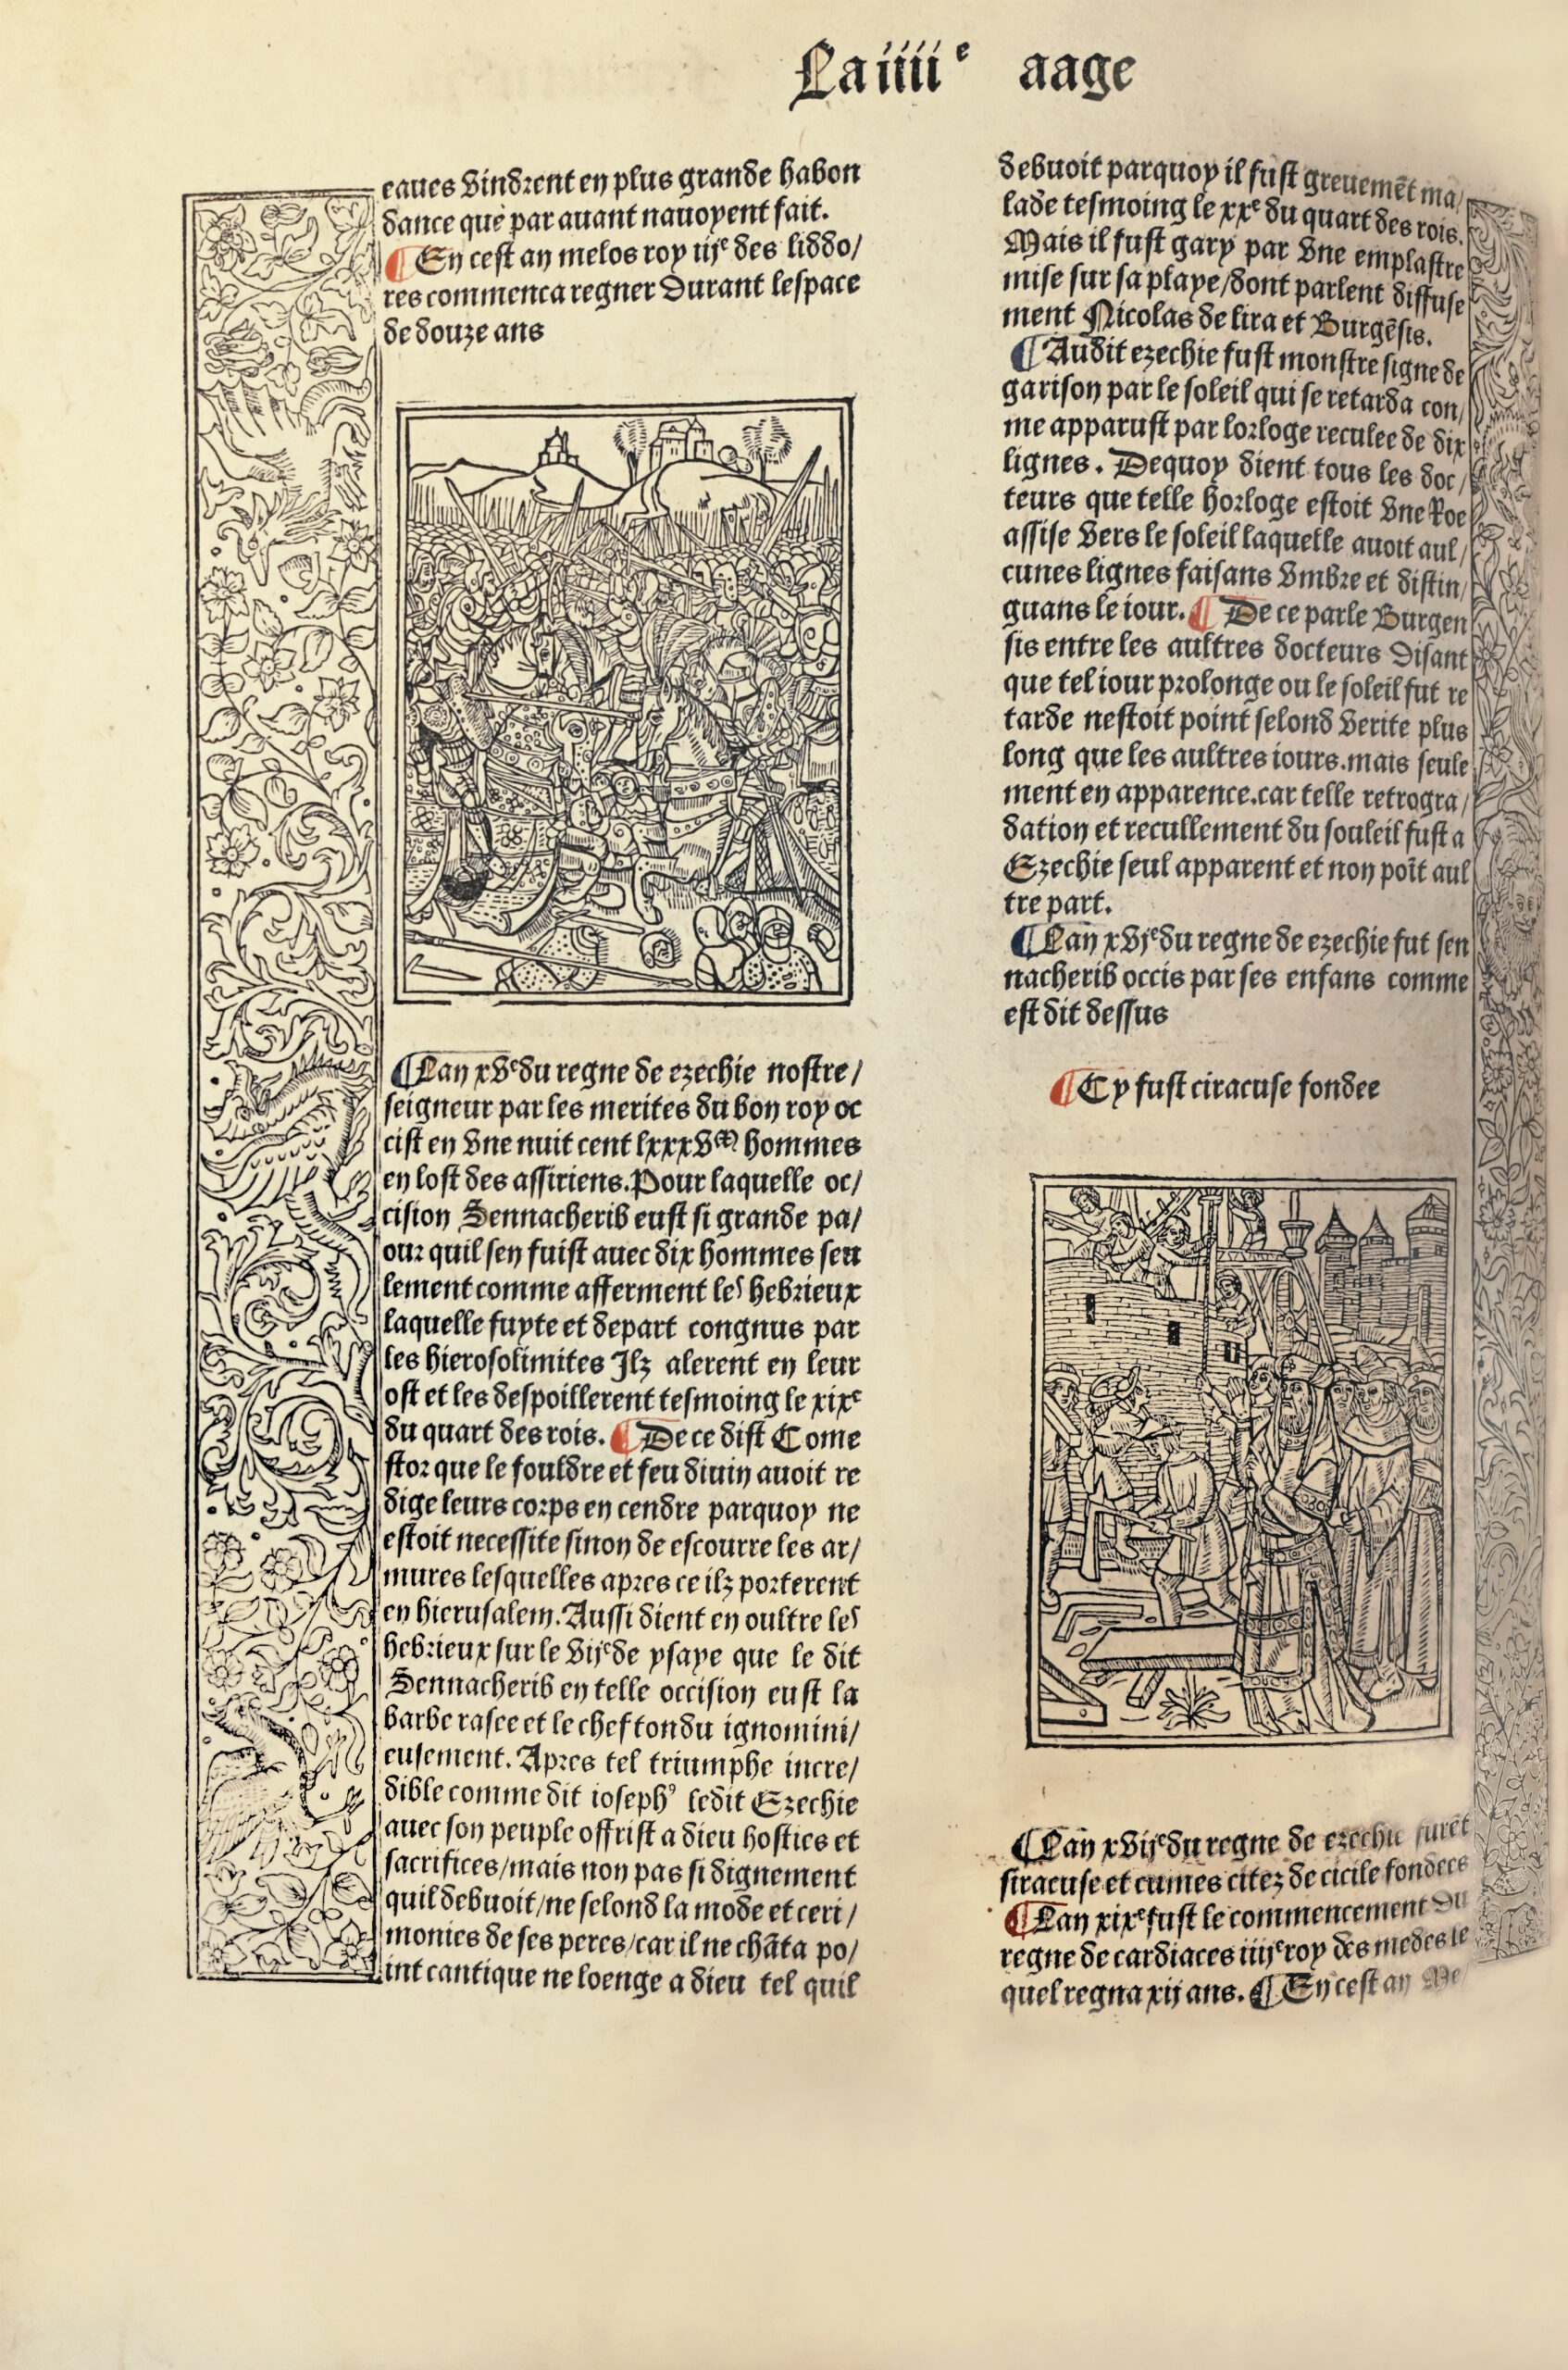 La iiiiᵉ aage
eaues vindrent en plus grande habon
dance que par auant nauoyent fait.
¶ En cest an melos roy iijᵉ des liddo/
res commenca regner durant lespace
de douze ans
¶ Lan xvᵉ du regne de ezechie nostre/
seigneur par les merites du bon roy oc
cist en vne nuit cent lxxxvᵐ hommes
en lost des assiriens. Pour laquelle oc/
cision Sennacherib eust si grande pa/
our quil sen fuist auec dix hommes seu
lement comme afferment les hebrieux
laquelle fuyte et depart congnus par
les hierosolimites Ilz alerent en leur
ost et les despoillerent tesmoing le xixᵉ
du quart des rois. ¶ De ce dist Come
stor que le fouldre et feu diuin auoit re
dige leurs corps en cendre parquoy ne
estoit necessite sinon de escourre les ar/
mures lesquelles apres ce ilz porterent
en hierusalem. Aussi dient en oultre les
hebrieux sur le vijᵉ de ysaye que le dit
Sennacherib en telle occision eust la
barbe rasee et le chef tondu ignomini/
eusement. Apres tel triumphe incre/
dible comme dit iosephꝰ ledit Ezechie
auec son peuple offrist a dieu hosties et
sacrifices/mais non pas si dignement
quil debuoit/ne selond la mode et ceri/
monies de ses peres/car il ne chãta po/
int cantique ne loenge a dieu tel quil
debuoit parquoy il fust greuemẽt ma/
lade tesmoing le xxᵉ du quart des rois.
Mais il fust gary par vne emplastre
mise sur sa playe/dont parlent diffuse
ment Nicolas de lira et Burgẽsis.
¶ Audit ezechie fust monstre signe de
garison par le soleil qui se retarda con/
me apparust par lorloge reculee de dix
lignes. Dequoy dient tous les doc/
teurs que telle horloge estoit vne Roe
assise vers le soleil laquelle auoit aul/
cunes lignes faisans vmbre et distin/
guans le iour. ¶ De ce parle Burgen
sis entre les aultres docteurs disant
que tel iour prolonge ou le soleil fut re
tarde nestoit point selond verite plus
long que les aultres iours.mais seule
ment en apparence.car telle retrogra/
dation et recullement du souleil fust a
Ezechie seul apparent et non poĩt aul
tre part.
¶ Lan xvjᵉ du regne de ezechie fut sen
nacherib occis par ses enfans comme
est dit dessus
¶ Cy fust ciracuse fondee
¶ Lan xvijᵉ du regne de ezechie furẽt
siracuse et cumes citez de cicile fondees
¶ Lan xixᵉ fust le commencement du
regne de cardiaces iiijᵉ roy des medes le
quel regna xij ans. ¶ En cest an Me/